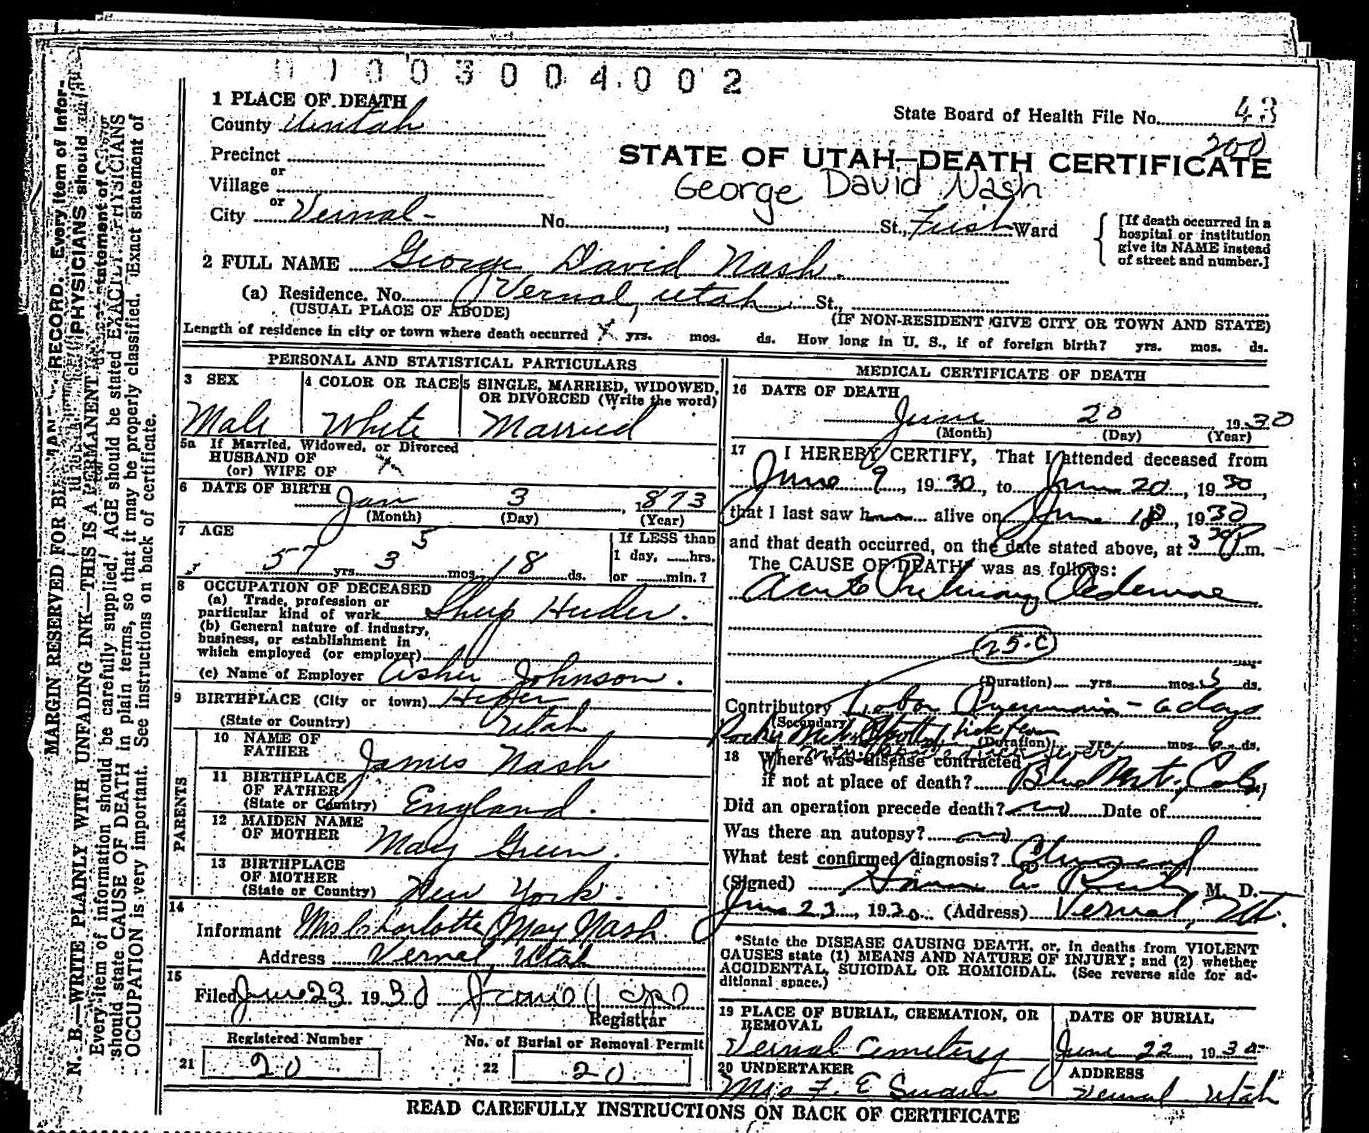 0 1 0 0 3 0 0 4 0 0 2
1 PLACE OF DEATH
County Uintah
State Board of Health File No. 43
200
Precinct
or
Village
or
City Vernal No. St., First Ward
STATE OF UTAH—DEATH CERTIFICATE
George David Nash
[If death occurred in a
hospital or institution
give its NAME instead
of street and number.]
2 FULL NAME George David Nash.
(a) Residence. No. Vernal, Utah St.,
(USUAL PLACE OF ABODE)
(IF NON-RESIDENT GIVE CITY OR TOWN AND STATE)
Length of residence in city or town where death occurred yrs. mos. ds. How long in U. S., if of foreign birth? yrs. mos. ds.
PERSONAL AND STATISTICAL PARTICULARS
3 SEX
Male
4 COLOR OR RACE
White
5 SINGLE, MARRIED, WIDOWED,
OR DIVORCED (Write the word)
Married
5a If Married, Widowed, or Divorced
HUSBAND OF
(or) WIFE OF
6 DATE OF BIRTH
Jan 3, 1873
(Month) (Day) (Year)
7 AGE
5
57 yrs. 3 mos. 18 ds.
If LESS than
1 day, ....hrs.
or ....min.?
8 OCCUPATION OF DECEASED
(a) Trade, profession or
particular kind of work Sheep Herder.
(b) General nature of industry,
business, or establishment in
which employed (or employer)
(c) Name of Employer Asher Johnson.
9 BIRTHPLACE (City or town) Heber
(State or Country) Utah
PARENTS
10 NAME OF
FATHER James Nash
11 BIRTHPLACE
OF FATHER
(State or Country) England.
12 MAIDEN NAME
OF MOTHER Mary Green.
13 BIRTHPLACE
OF MOTHER
(State or Country) New York.
14
Informant Mrs Charlotte May Nash
Address Vernal, Utah
15
Filed June 23 1930
Registrar
Registered Number
21 20
No. of Burial or Removal Permit
22 20
MEDICAL CERTIFICATE OF DEATH
16 DATE OF DEATH
June 20 1930
(Month) (Day) (Year)
17 I HEREBY CERTIFY, That I attended deceased from
June 9, 1930, to June 20, 1930,
that I last saw h alive on June 18, 1930
and that death occurred, on the date stated above, at 3 30 P m.
The CAUSE OF DEATH was as follows:
Acute Pulmonary Oedemae
25.C
(Duration) yrs. mos. 5 ds.
Contributory Lobar Pneumonia - 6 days
(Secondary)
Rocky Mt Spotted tick fever
(Duration) yrs. mos. ds.
18 Where was disease contracted
if not at place of death? Blue Mt., Colo,
Did an operation precede death? no Date of
Was there an autopsy? no
What test confirmed diagnosis? Clinical
(Signed) M. D.
June 23, 1930 (Address) Vernal, Ut.
*State the DISEASE CAUSING DEATH, or, in deaths from VIOLENT
CAUSES state (1) MEANS AND NATURE OF INJURY; and (2) whether
ACCIDENTAL, SUICIDAL OR HOMICIDAL. (See reverse side for ad-
ditional space.)
19 PLACE OF BURIAL, CREMATION, OR
REMOVAL
Vernal Cemetery
DATE OF BURIAL
June 22, 1930
20 UNDERTAKER
Mrs F. E Swain
ADDRESS
Vernal Utah
READ CAREFULLY INSTRUCTIONS ON BACK OF CERTIFICATE
MARGIN RESERVED FOR
N. B.—WRITE PLAINLY WITH UNFADING INK—THIS IS A PERMANENT RECORD. Every item of infor-
Every item of information should be carefully supplied. AGE should be stated EXACTLY. PHYSICIANS
should state CAUSE OF DEATH in plain terms, so that it may be properly classified. Exact statement of
OCCUPATION is very important. See instructions on back of certificate.